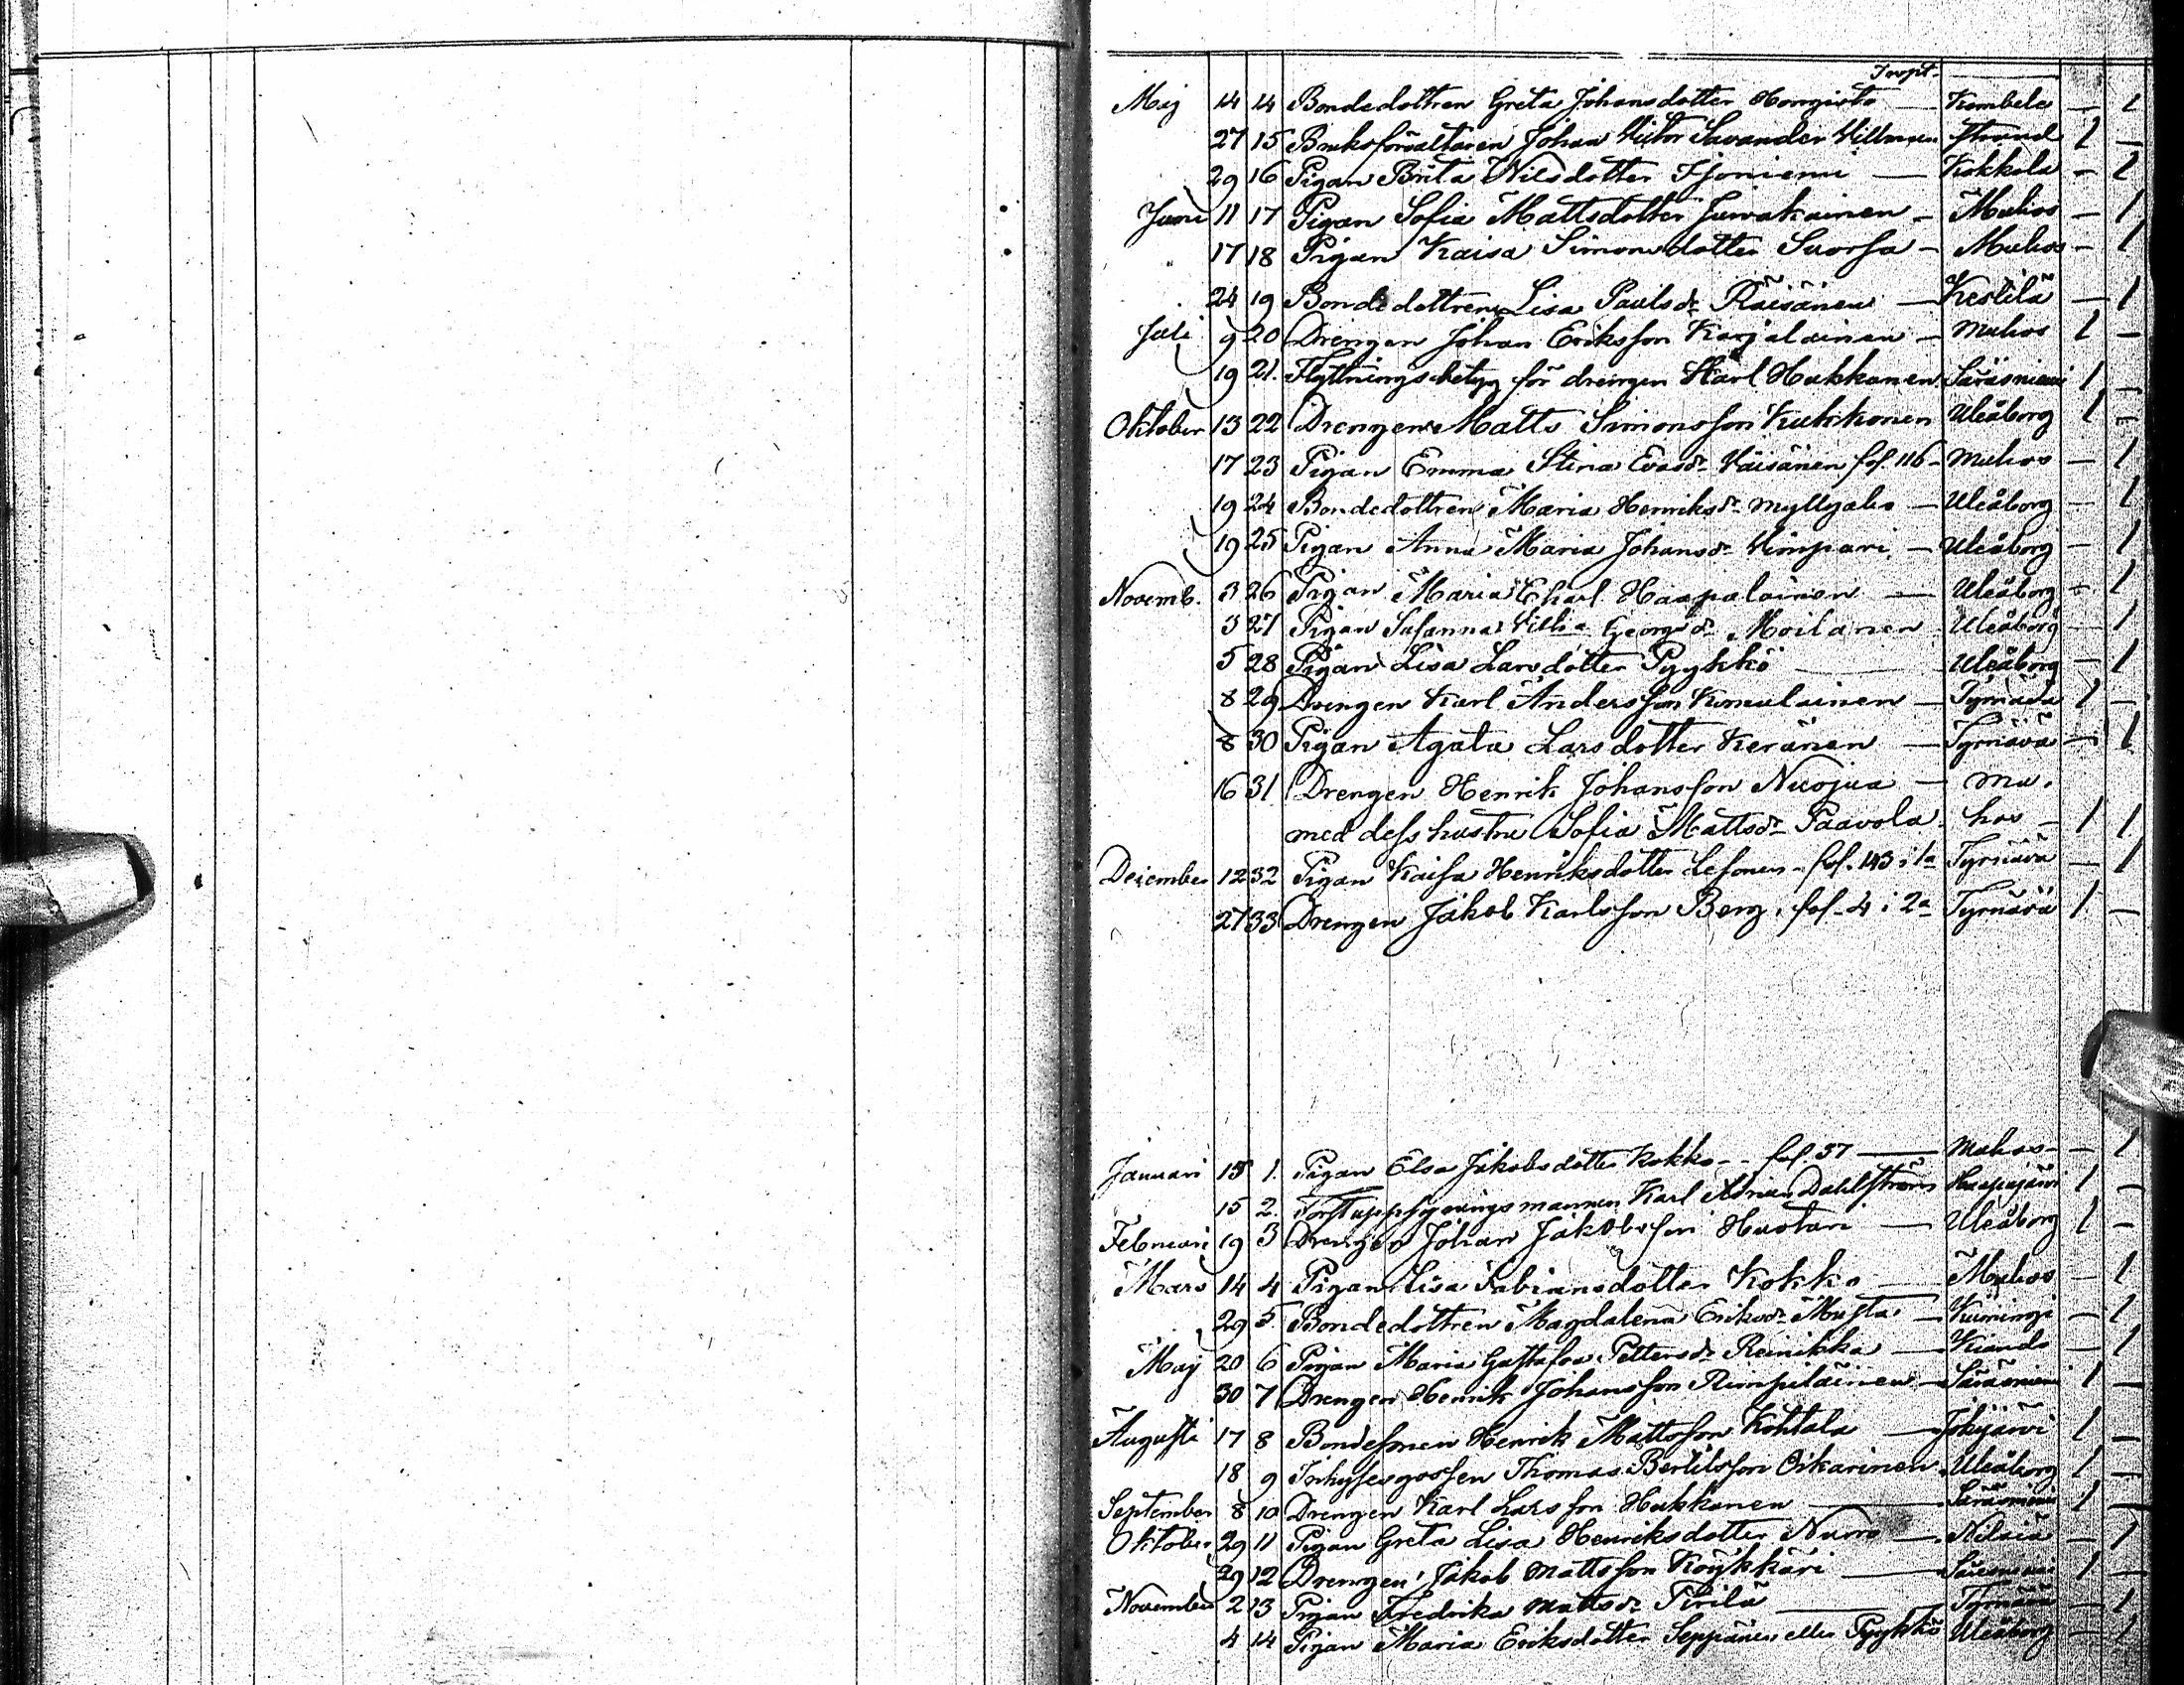 Transpt.
Maj 14 14 Bondedottren Greta Johansdotter Hongisto — Kembele — 1
27 15 Bruksförvaltaren Johan Victor Savander Strand 1 —
29 16 Pigan Brita Nilsdotter — Kokkola — 1
Juni 11 17 Pigan Sofia Mattsdotter Juvakainen — Muhos — 1
17 18 Pigan Kaisa Simonsdotter Suorsa — Muhos — 1
24 19 Bondedottren Lisa Paulsdr Räisänen — Kestilä — 1
Juli 9 20 Drengen Johan Eriksson Karjalainen — Muhos 1 —
19 21. Flyttningsbetyg för drengen Karl Hukkanen Säräsniemi 1 —
Oktober 13 22 Drengen Matts Simonsson Kukkonen Uleåborg 1 —
17 23 Pigan Emma Stina Evasdr Väisänen fol. 116 — Muhos — 1
19 24 Bondedottren Maria Henriksdr Myllyaho — Uleåborg — 1
19 25 Pigan Anna Maria Johansdr Vimpari — Uleåborg — 1
Novemb. 3 26 Pigan Maria Haapalainen — Uleåborg — 1
3 27 Pigan Susanna Georgsdr Moilanen Uleåborg — 1
5 28 Pigan Lisa Larsdotter Pyykkö — Uleåborg — 1
8 29 Drengen Karl Andersson Komulainen — Tyrnävä 1 —
8 30 Pigan Agata Larsdotter Keränen — Tyrnävä — 1
16 31 Drengen Henrik Johansson Nuojua — Mu-
med dess hustru Sofia Mattsdr Paavola hos — 1 1
December 12 32 Pigan Kaisa Henriksdotter Lesonen — fol. 143 i 1a Tyrnävä — 1
27 33 Drengen Jakob Karlsson Berg, fol. 4 i 2a Tyrnävä 1 —
Januari 15 1. Pigan Elsa Jakobsdotter Kokko — fol. 37 — Muhos — 1
15 2. Forstuppsyningsmannen Karl Adrian Dahlström Haapajärvi 1 —
Februari 19 3 Drengen Johan Jakobsson Hustari — Uleåborg 1 —
Mars 14 4 Pigan Lisa Fabiansdotter Kokko — Muhos — 1
29 5 Bondedottren Magdalena Eriksdr Musta — Kiminge — 1
Maj 20 6 Pigan Maria Gustafva Pettersdr Reinikka — Kianda — 1
30 7 Drengen Henrik Johansson Rimpiläinen — Säräsniemi 1 —
Augusti 17 8 Bondesonen Henrik Mattsson Kohtala — Jokijärvi 1 —
18 9 Inhysesgossen Thomas Bertilsson Oikarinen Uleåborg 1 —
September 8 10 Drengen Karl Larsson Hukkanen — Säräsniemi 1 —
Oktober 29 11 Pigan Greta Lisa Henriksdotter Nurro — Nilsiä — 1
29 12 Drengen Jakob Mattsson Köykkäri — Säräsniemi 1 —
November 2 13 Pigan Fredrika Mattsdr Pirilä — Tyrnävä — 1
4 14 Pigan Maria Eriksdotter Seppänen eller Pyykkö Uleåborg — 1